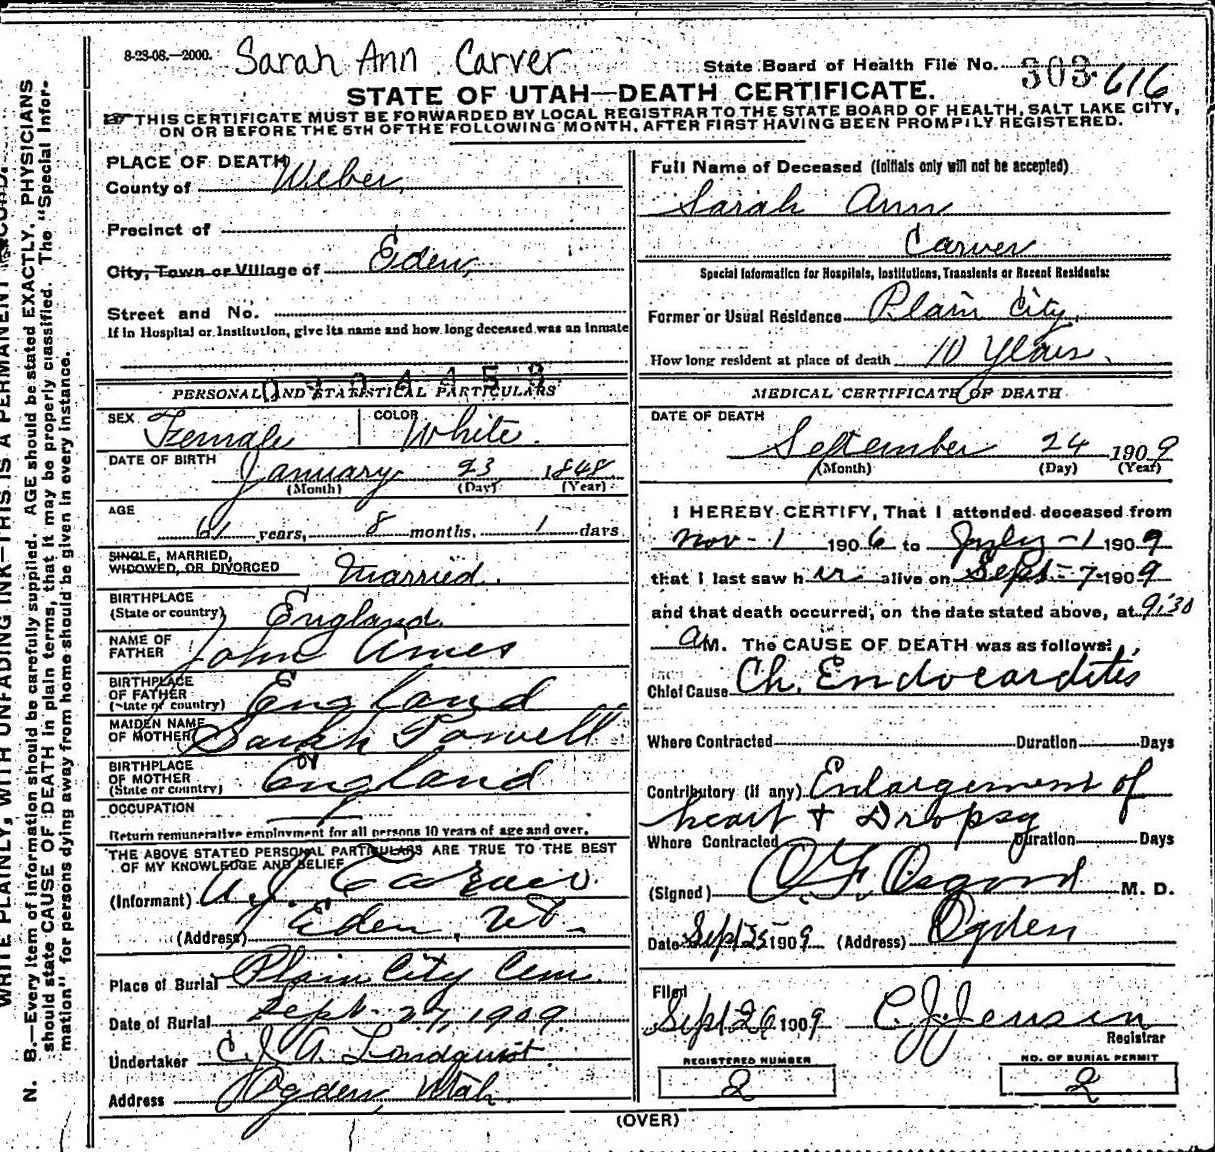 8-23-08.—2000. Sarah Ann Carver
State Board of Health File No. 303 616
STATE OF UTAH—DEATH CERTIFICATE.
THIS CERTIFICATE MUST BE FORWARDED BY LOCAL REGISTRAR TO THE STATE BOARD OF HEALTH, SALT LAKE CITY,
ON OR BEFORE THE 5TH OF THE FOLLOWING MONTH, AFTER FIRST HAVING BEEN PROMPILY REGISTERED.
PLACE OF DEATH
County of Weber
Precinct of
City, Town or Village of Eden,
Street and No.
If in Hospital or Institution, give its name and how long deceased was an inmate
PERSONAL AND STATISTICAL PARTICULARS
SEX Female COLOR White.
DATE OF BIRTH January 23 1848
(Month) (Day) (Year)
AGE 61 years, 8 months, 1 days
SINGLE, MARRIED,
WIDOWED, OR DIVORCED Married.
BIRTHPLACE
(State or country) England.
NAME OF
FATHER John Ames
BIRTHPLACE
OF FATHER
(State or country) England
MAIDEN NAME
OF MOTHER Sarah Powell
BIRTHPLACE
OF MOTHER
(State or country) England
OCCUPATION
Return remunerative employment for all persons 10 years of age and over.
THE ABOVE STATED PERSONAL PARTICULARS ARE TRUE TO THE BEST
OF MY KNOWLEDGE AND BELIEF
(Informant) Carver
(Address) Eden, Ut.
Place of Burial Plain City Cem.
Date of Burial Sept. 27, 1909.
Undertaker C. J. A. Lindquist
Address Ogden, Utah.
Full Name of Deceased (Initials only will not be accepted)
Sarah Ann
Carver
Special Information for Hospitals, Institutions, Transients or Recent Residents:
Former or Usual Residence Plain City,
How long resident at place of death 10 Years.
MEDICAL CERTIFICATE OF DEATH
DATE OF DEATH
September 24 1909
(Month) (Day) (Year)
I HEREBY CERTIFY, That I attended deceased from
Nov - 1 1906 to July - 1 1909
that I last saw her alive on Sept - 7 - 1909
and that death occurred, on the date stated above, at 9:30
a M. The CAUSE OF DEATH was as follows:
Chief Cause Ch. Endocarditis
Where Contracted Duration Days
Contributory (if any) Enlargement of
heart + Dropsy
Where Contracted Duration Days
(Signed) O. F. Osgood M. D.
Date Sept 25 1909 (Address) Ogden
Filed
Sept 26 1909 C. J. Jensen
Registrar
REGISTERED NUMBER
2
NO. OF BURIAL PERMIT
2
(OVER)
WRITE PLAINLY, WITH UNFADING INK—THIS IS A PERMANENT RECORD.
N. B.—Every item of information should be carefully supplied. AGE should be stated EXACTLY. PHYSICIANS
should state CAUSE OF DEATH in plain terms, that it may be properly classified. The "Special Infor-
mation" for persons dying away from home should be given in every instance.